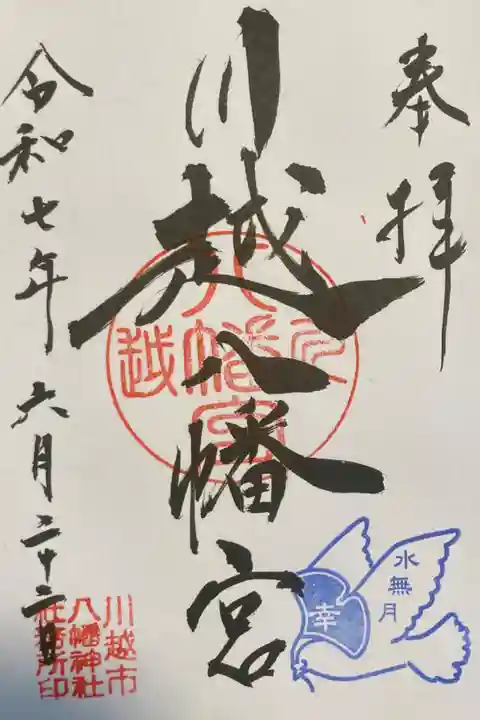 奉拝
川越八幡宮
八幡宮
川越
令和七年六月二十三日
川越市
八幡神社
社務所印
水無月
幸